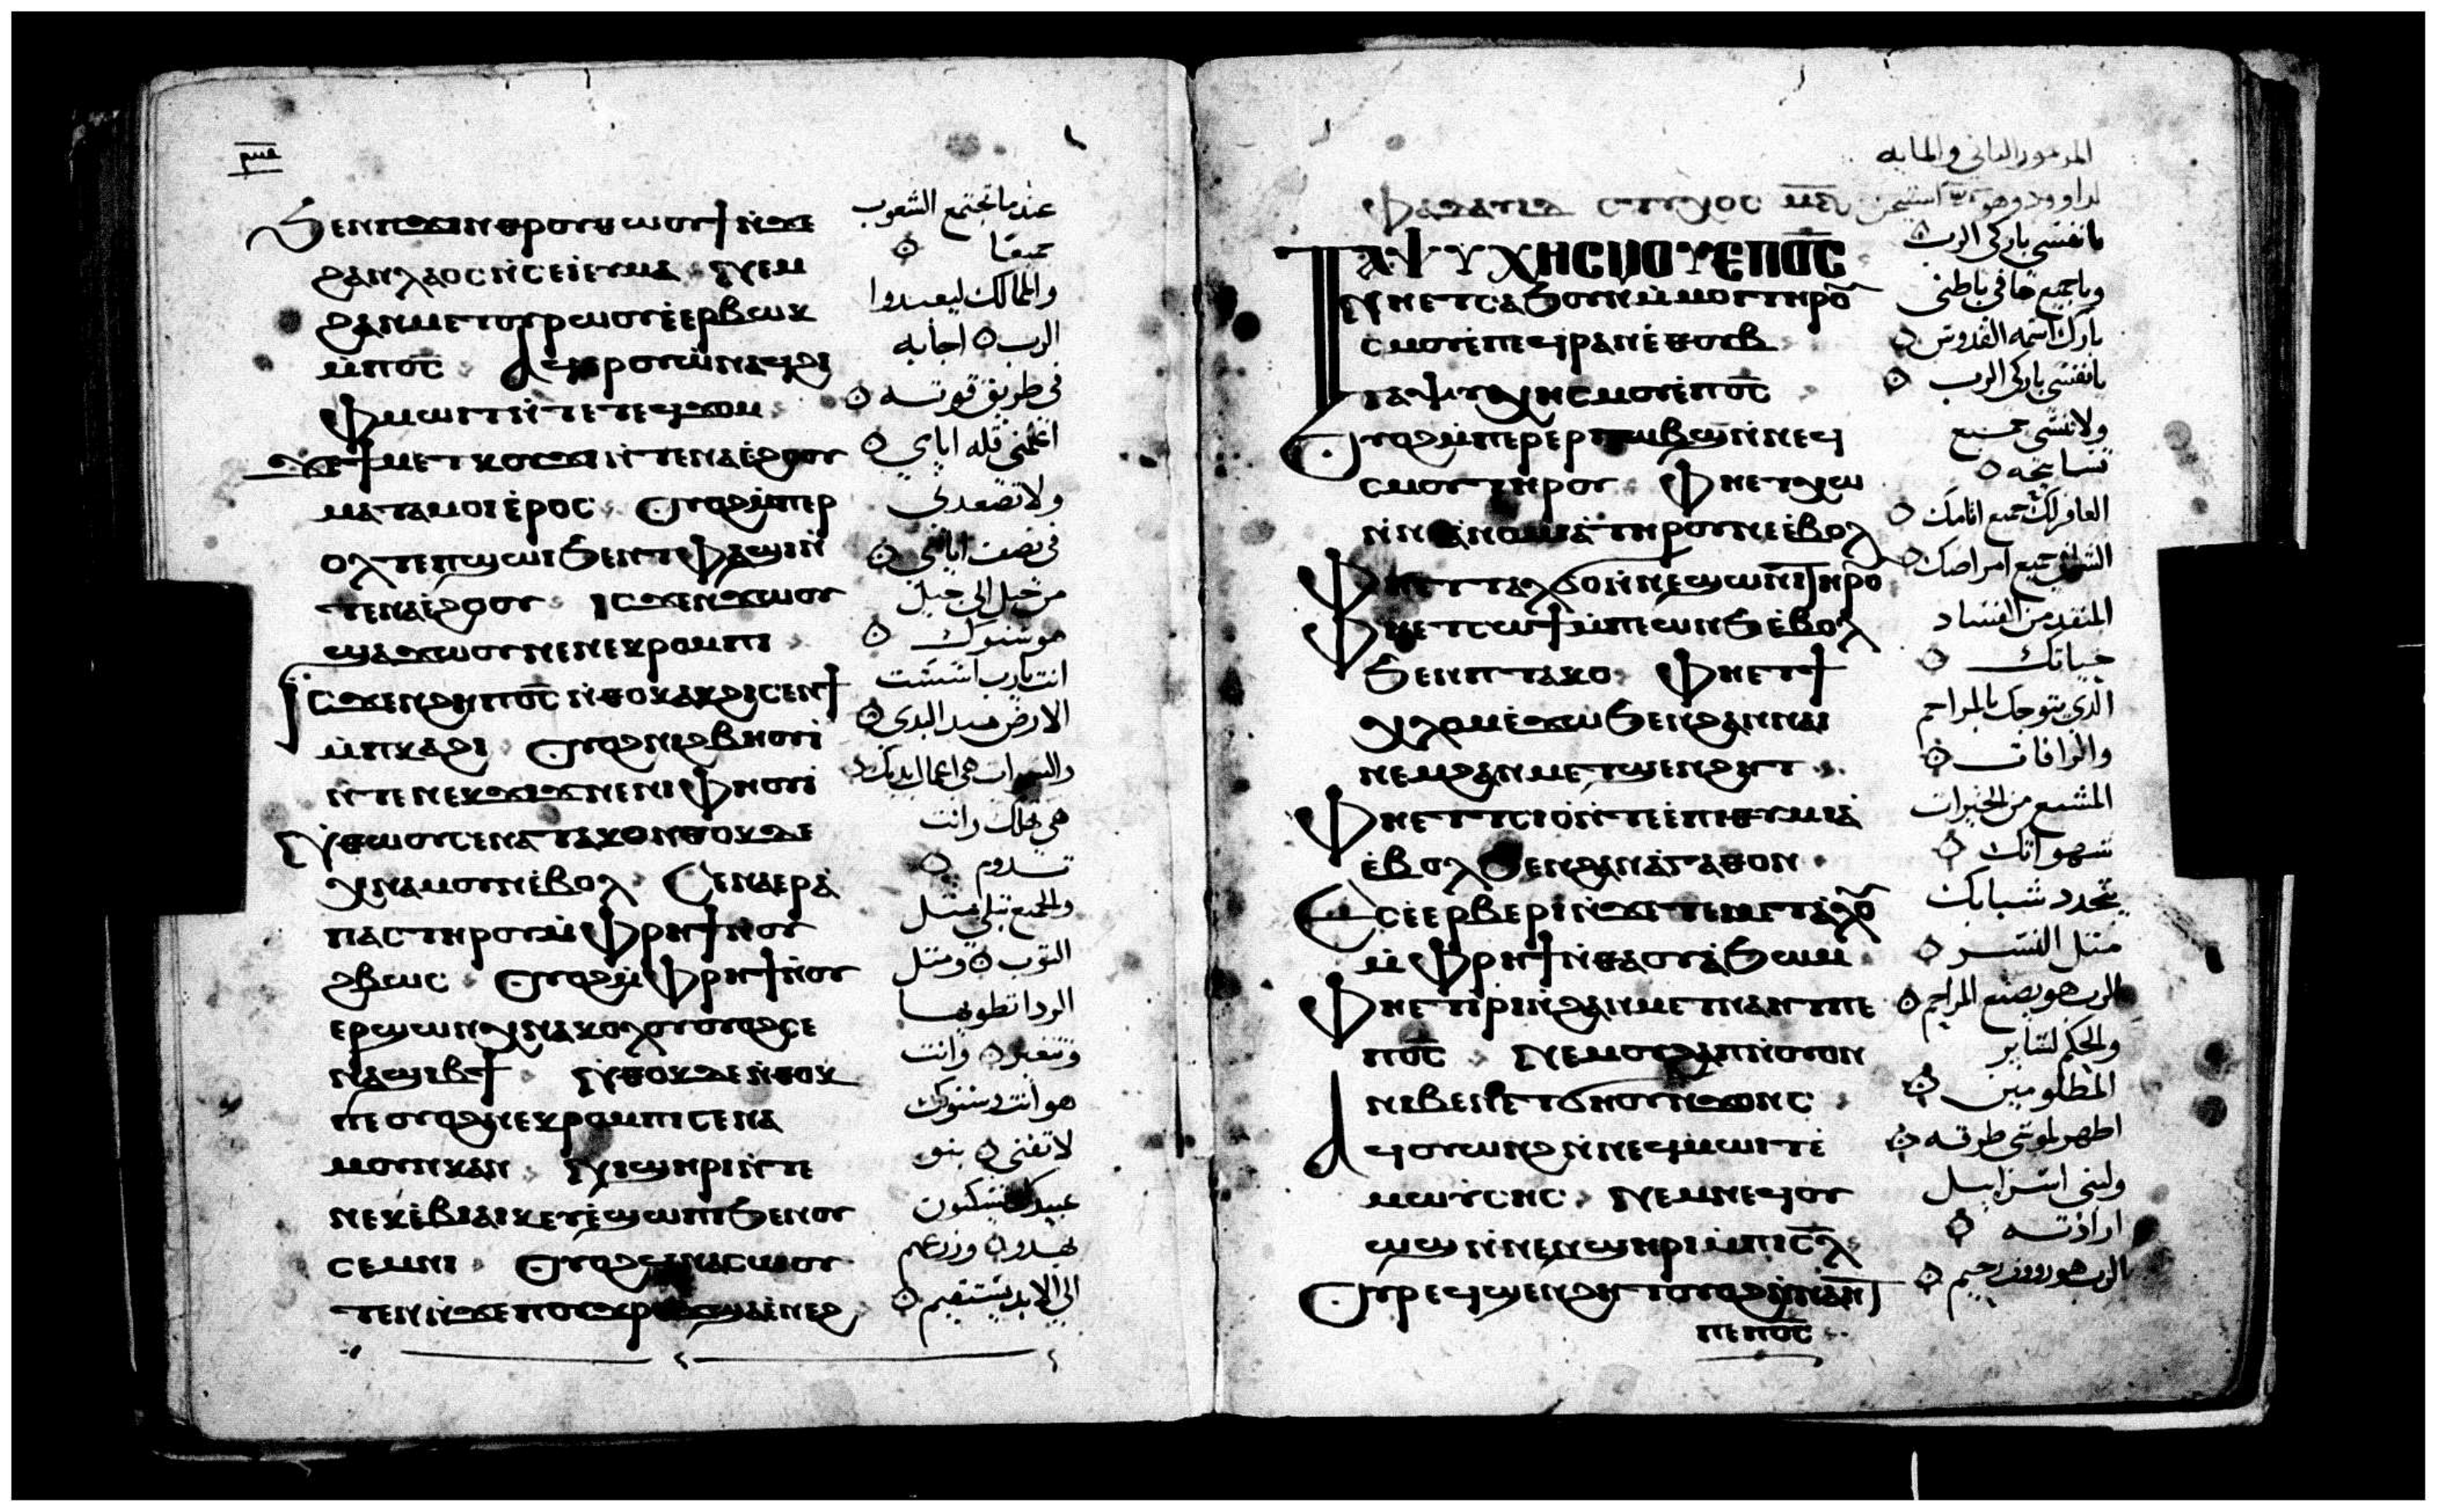 ⲣⲙⲉ
Ϧⲉⲛⲡϫⲓⲛⲑⲣⲟⲩⲑⲱⲟⲩϯ ⲛ̇ϫⲉ
ϩⲁⲛⲗⲁⲟⲥ ⲛ̇ⲥⲉⲓ̇ⲉⲩⲙⲁ ⲛⲉⲙ
ϩⲁⲛⲙⲉⲧⲟⲩⲣⲱⲟⲩ ⲉ̇ⲉⲣⲃⲱⲕ
ⲙ̇ⲡⲟ̅ⲥ̅ ⲁϥⲉⲣⲟⲩⲱ̇ ⲛⲁϥ ϩⲓ
ⲫⲙⲱⲓⲧ ⲛ̇ⲧⲉ ⲧⲉϥϫⲟⲙ
ϫⲉ ϯⲙⲉⲧⲕⲟⲩϫⲓ ⲛ̇ⲧⲉ ⲛⲁⲉ̇ϩⲟⲟⲩ
ⲙⲁⲧⲁⲙⲟⲓ ⲉ̇ⲣⲟⲥ ⲟⲩⲟϩ ⲙ̇ⲡⲉⲣ
ⲟⲗⲧ ⲉⲡϣⲱⲓ ϧⲉⲛ ⲧⲫⲁϣⲓ ⲛ̇
ⲧⲉ ⲛⲁⲉ̇ϩⲟⲟⲩ ⲓⲥϫⲉⲛ ϫⲱⲟⲩ
ϣⲁ ϫⲱⲟⲩ ⲛⲉ ⲛⲉⲕⲣⲟⲙⲡⲓ
ⲓⲥϫⲉⲛϩⲏ ⲡⲟ̅ⲥ̅ ⲛ̇ⲑⲟⲕ ⲁⲕϩⲓⲥⲉⲛϯ
ⲙ̇ⲡⲕⲁϩⲓ ⲟⲩⲟϩ ⲛⲓϩⲃⲏⲟⲩⲓ̇
ⲛ̇ⲧⲉ ⲛⲉⲕϫⲓϫ ⲛⲉ ⲛⲓⲫⲏⲟⲩⲓ̇
ⲛ̇ⲑⲱⲟⲩ ⲥⲉⲛⲁⲧⲁⲕⲟ ⲛ̇ⲑⲟⲕ ⲇⲉ
ⲭⲛⲁⲙⲟⲩⲛ ⲉ̇ⲃⲟⲗ ⲥⲉⲛⲁⲉⲣⲁ̇
ⲡⲁⲥ ⲧⲏⲣⲟⲩ ⲙ̇ⲫⲣⲏϯ ⲛ̇ⲟⲩ
ϩⲃⲱⲥ ⲟⲩⲟϩ ⲙ̇ⲫⲣⲏϯ ⲛ̇ⲟⲩ
ⲉⲣϣⲱⲛ ⲭⲛⲁⲕⲟⲗⲟⲩ ⲟⲩⲟϩ ⲥⲉ
ⲛⲁϣⲓⲃϯ ⲛ̇ⲑⲟⲕ ⲇⲉ ⲛ̇ⲑⲟⲕ
ⲡⲉ ⲟⲩⲟϩ ⲛⲉⲕⲣⲟⲙⲡⲓ ⲥⲉⲛⲁ
ⲙⲟⲩⲛⲕ ⲁⲛ ⲛⲓϣⲏⲣⲓ ⲛ̇ⲧⲉ
ⲛⲉⲕⲉ̇ⲃⲓⲁⲓⲕ ⲉⲩⲉ̇ϣⲱⲡⲓ ϧⲉⲛ ⲟⲩ
ⲥⲉⲙⲛⲓ ⲟⲩⲟϩ ⲉϥⲛⲁⲥⲱⲟⲩ
ⲧⲉⲛ ⲛ̇ϫⲉ ⲡⲟⲩϫⲣⲟϫ ϣⲁ ⲉ̇ⲛⲉϩ
عندما تجتمع الشعوب
جميعًا
والممالك ليعبدوا
الرب اجابه
فى طريق قوته
اعلمنى قله ايامي
ولا تصعدنى
فى نصف ايامي
من جيل الى جيل
هو سنوك
انت يارب اسست
الارض منذ البدى
والسموات هى اعمال يديك
هى تهلك وانت
تدوم
والجميع تبلى مثل
الثوب ومثل
الردا تطويها
وتتغير وانت
هو انت وسنوك
لا تفنى بنو
عبيدك يسكنون
بهدو وزرعهم
الى الابد يستقيم
المزمور الثانى والمايه
لداوود وهو استيخن
ⲯⲁⲗⲙⲟⲥ ⲥⲧⲩⲭⲟⲥ
Ⲧⲁⲯⲩⲭⲏ ⲥⲙⲟⲩ ⲉⲡⲟ̅ⲥ̅
ⲛⲏⲉⲧⲥⲁϧⲟⲩⲛ ⲙ̇ⲙⲟⲓ ⲧⲏⲣⲟⲩ
ⲥⲙⲟⲩ ⲉ̇ⲡⲉϥⲣⲁⲛ ⲉ̇ⲑⲟⲩⲃ
ⲧⲁⲯⲩⲭⲏ ⲥⲙⲟⲩ ⲉ̇ⲡⲟ̅ⲥ̅
ⲟⲩⲟϩ ⲙ̇ⲡⲉⲣⲉⲣⲡⲱⲃϣ ⲛ̇ⲛⲉϥ
ⲥⲙⲟⲩ ⲧⲏⲣⲟⲩ ⲫⲏⲉⲧⲭⲱ
ⲛ̇ⲛⲉⲁ̇ⲛⲟⲙⲓⲁ̇ ⲧⲏⲣⲟⲩ ⲛⲉ ⲉ̇ⲃⲟⲗ
ⲫⲏⲉⲧⲧⲁⲗϭⲟ ⲛ̇ⲛⲉϣⲱⲛⲓ ⲧⲏⲣⲟⲩ
ⲫⲏⲉⲧⲥⲱϯ ⲙ̇ⲡⲉⲱⲛϧ ⲉ̇ⲃⲟⲗ
ϧⲉⲛ ⲡⲧⲁⲕⲟ ⲫⲏⲉⲧϯ
ⲭⲗⲟⲙ ⲉ̇ϫⲱ ϧⲉⲛ ϩⲁⲛⲛⲁⲓ
ⲛⲉⲙ ϩⲁⲛⲙⲉⲧϣⲉⲛϩⲏⲧ
ⲫⲏⲉⲧⲧⲥⲓⲟ ⲛ̇ⲧⲉⲉ̇ⲡⲓⲑⲩⲙⲓⲁ̇
ⲉ̇ⲃⲟⲗ ϧⲉⲛ ϩⲁⲛⲁ̇ⲅⲁⲑⲟⲛ
ⲉⲥⲉ̇ⲉⲣⲃⲉⲣⲓ ⲛ̇ϫⲉ ⲧⲉⲙⲉⲧⲁ̇ⲗⲟⲩ
ⲙ̇ⲫⲣⲏϯ ⲛ̇ⲑⲁ ⲟⲩⲁ̇ϧⲱⲙ
ⲫⲏⲉⲧⲓ̇ⲣⲓ ⲛ̇ϩⲁⲛⲙⲉⲧⲛⲁⲏⲧ ⲡⲉ
ⲡⲟ̅ⲥ̅ ⲛⲉⲙ ⲟⲩϩⲁⲡ ⲛ̇ⲟⲩⲟⲛ
ⲛⲓⲃⲉⲛ ⲉⲧϭⲏⲟⲩ ⲛ̇ϫⲟⲛⲥ
ⲁϥⲟⲩⲱⲛϩ ⲛ̇ⲛⲉϥⲙⲱⲓⲧ ⲉ̇
ⲙⲱⲩ̇ⲥⲏⲥ ⲛⲉⲙ ⲛⲉϥⲟⲩ
ⲱϣ ⲛ̇ⲛⲉⲛϣⲏⲣⲓ ⲙ̇ⲡⲓⲥ̅ⲗ̅
ⲟⲩⲣⲉϥϣⲉⲛϩⲏⲧ ⲟⲩⲟϩ ⲛ̇ⲛⲁⲏⲧ
ⲡⲉ ⲡⲟ̅ⲥ̅
يا نفسى باركى الرب
ويا جميع ما فى باطنى
بارك اسمه القدوس
يا نفسى باركى الرب
ولا تنسى جميع
تسابيحه
الغافر لك جميع اثامك
الشافى جميع امراضك
المنقذ من الفساد
حياتك
الذي يتوجك بالمراحم
والرافات
المشبع من الخيرات
شهواتك
يتجدد شبابك
مثل النسر
الرب هو يصنع المراحم
والحكم لساير
المظلومين
اظهر لموسى طرقه
ولبنى اسراييل
ارادته
الرب هو رووف رحيم